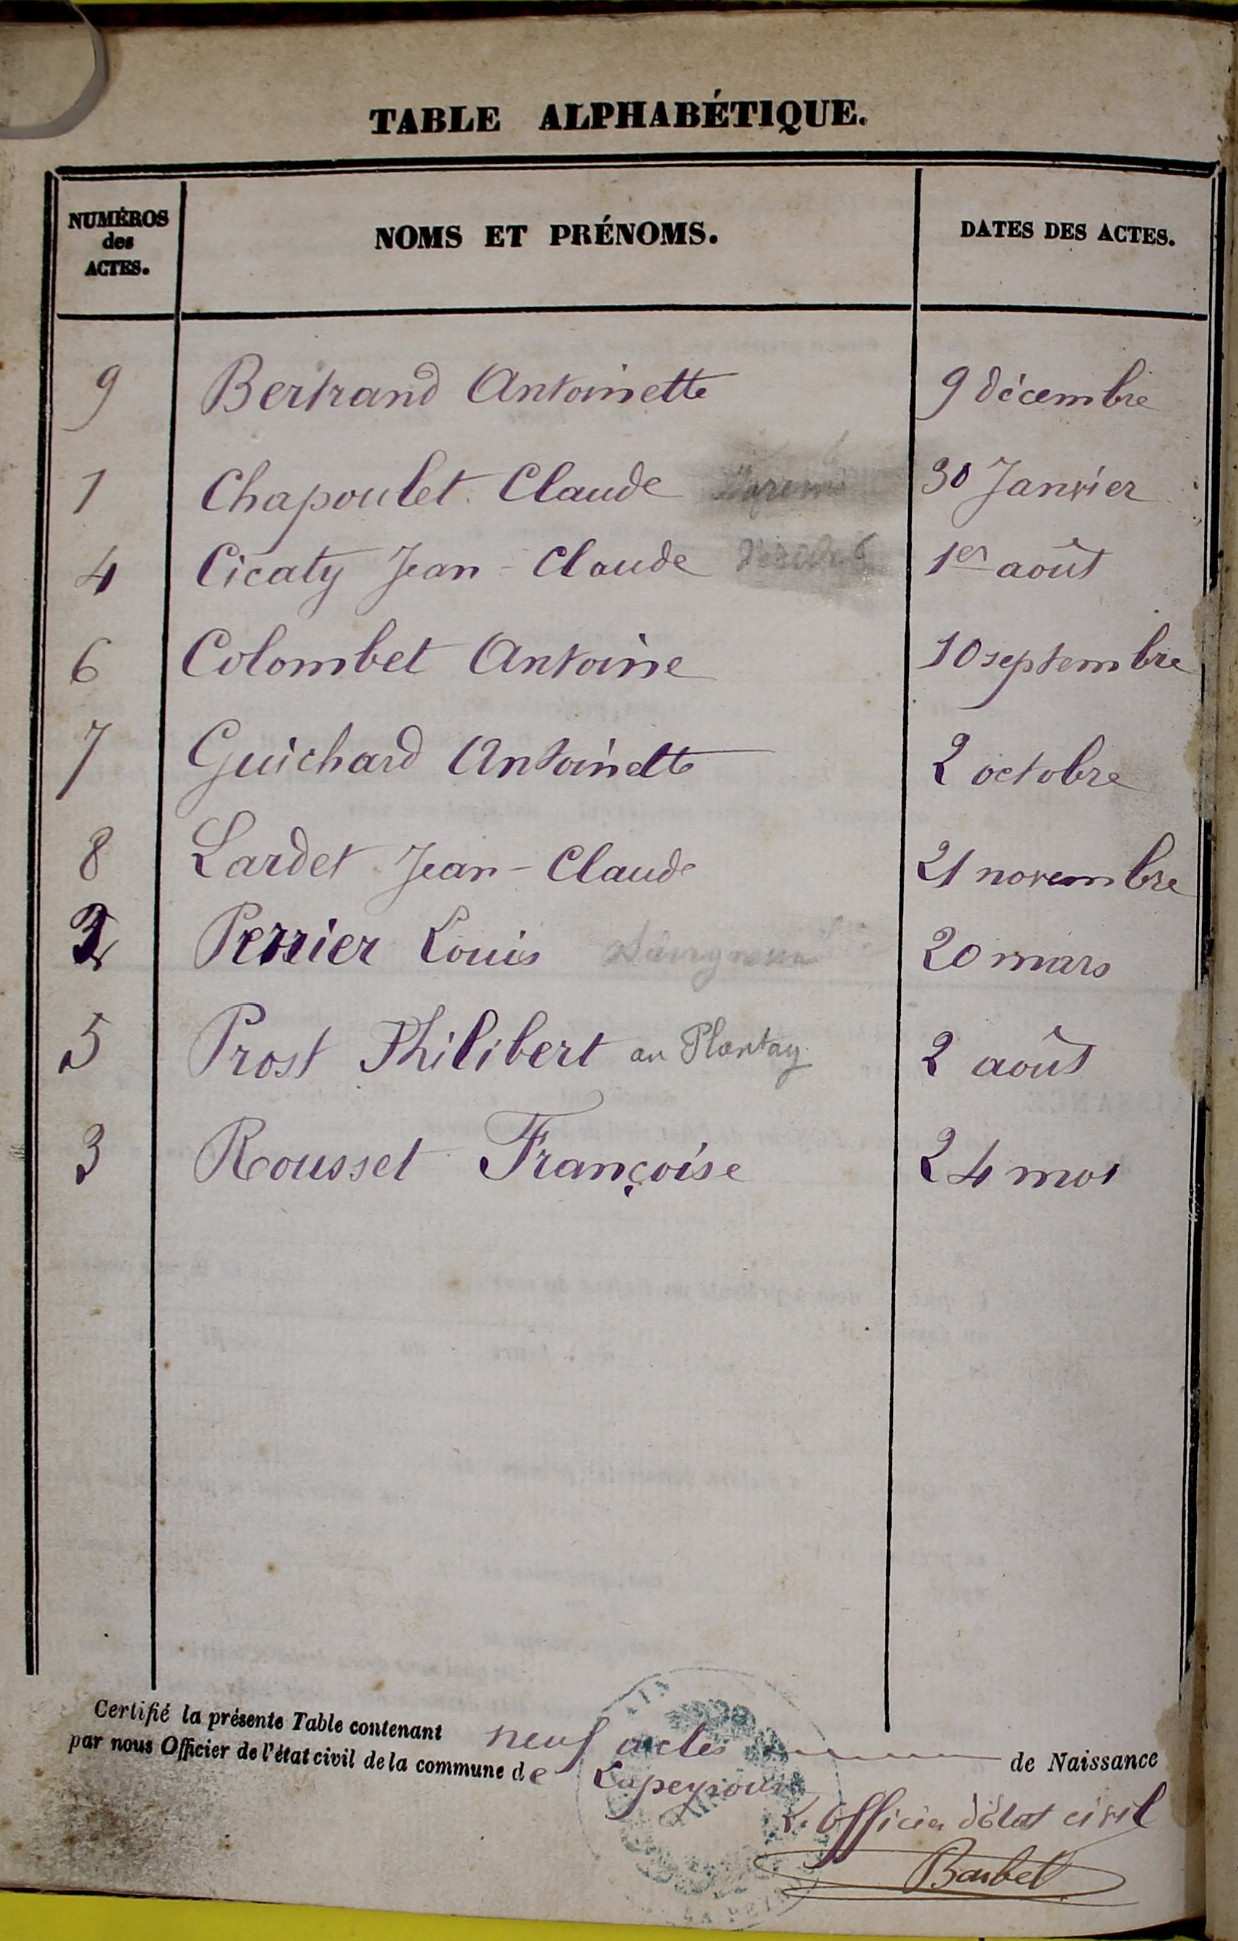 TABLE ALPHABÉTIQUE.
NUMÉROS
des
ACTES.
NOMS ET PRÉNOMS.
DATES DES ACTES.
9 Bertrand Antoinette 9 décembre
1 Chapoulet Claude 30 Janvier
4 Cicaty Jean-Claude 1er août
6 Colombet Antoine 10 septembre
7 Guichard Antoinette 2 octobre
8 Lardet Jean-Claude 21 novembre
2 Perrier Louis 20 mars
5 Prost Philibert au Plantay 2 août
3 Rousset Françoise 24 mai
Certifié la présente Table contenant neuf actes de Naissance
par nous Officier de l'état civil de la commune de Lapeyrouse
L'officier d'état civil
Barbet